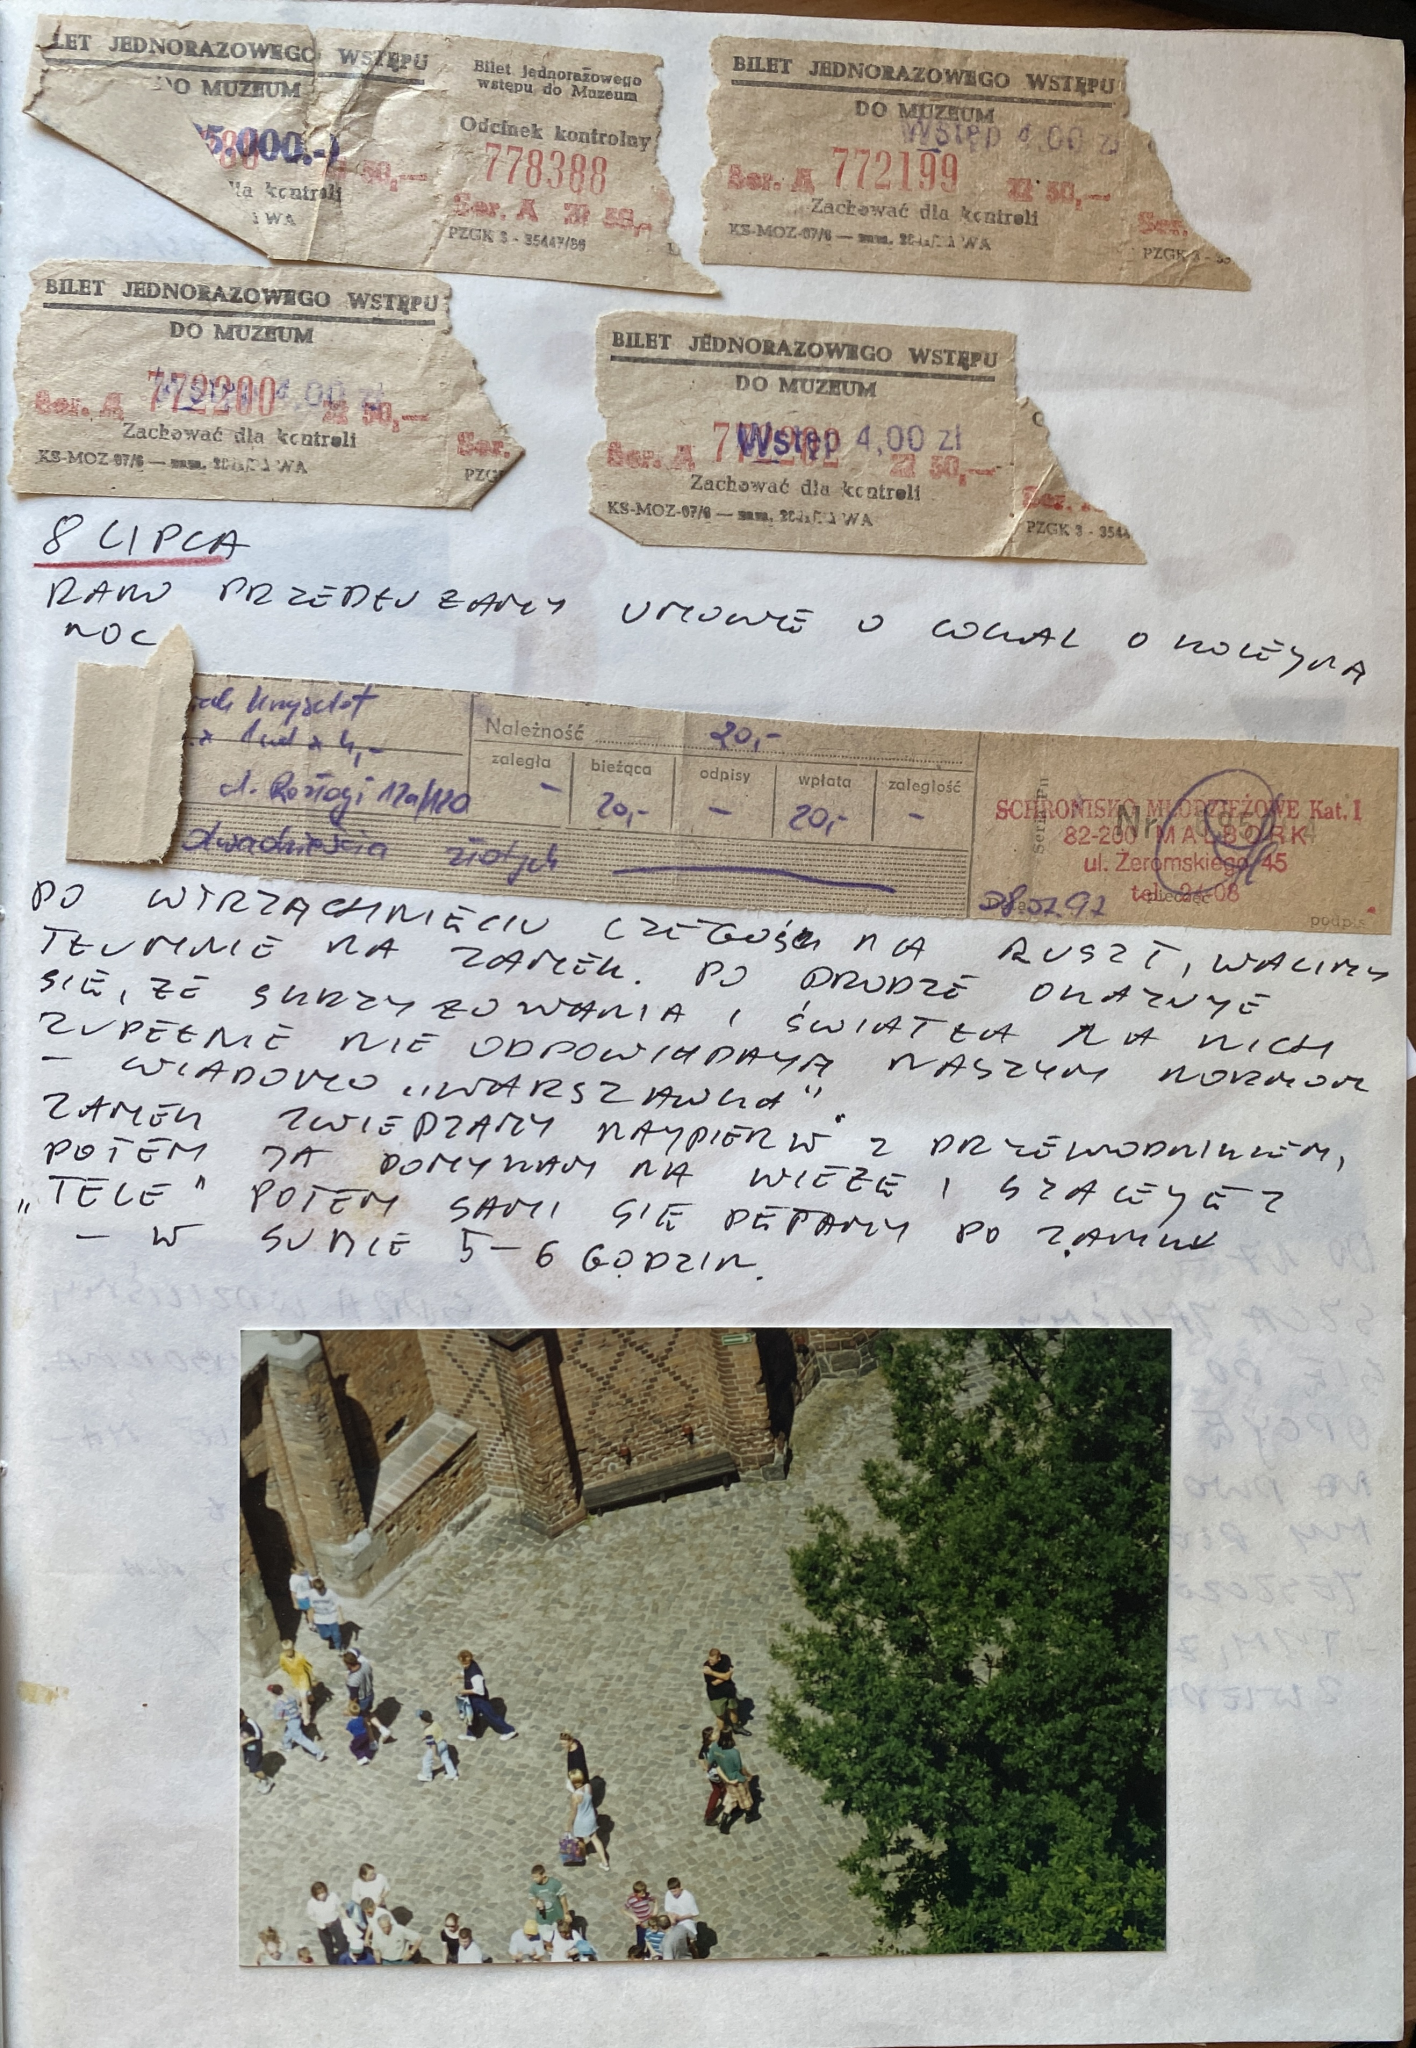 LET JEDNORAZOWEGO WSTĘPU
DO MUZEUM
5.000.-
50,—
dla kontroli
WA
Bilet jednorazowego
wstępu do Muzeum
Odcinek kontrolny
778388
Ser. A Zł 50,-
PZGK 3 - 35447/86
BILET JEDNORAZOWEGO WSTĘPU
DO MUZEUM
Wstęp 4,00 zł
Ser. A 772199 Zł 50,—
Zachować dla kontroli
KS-MOZ-07/6 — zam. WA
Ser.
PZGK 3 - 35
BILET JEDNORAZOWEGO WSTĘPU
DO MUZEUM
Wstęp 4,00 zł
Ser. A 772200 Zł 50,—
Zachować dla kontroli
KS-MOZ-07/6 — zam. WA
Ser.
PZGK
BILET JEDNORAZOWEGO WSTĘPU
DO MUZEUM
Wstęp 4,00 zł
Ser. A Zł 50,—
Zachować dla kontroli
KS-MOZ-07/6 — zam. WA
Ser.
PZGK 3 - 354
8 LIPCA
RANO PRZEDŁUŻAMY UMOWĘ O LOKAL O KOLEJNĄ
NOC
Krzysztof
ul. Rozłogi 12a/120
dwadzieścia złotych
Należność 20,-
zaległa bieżąca odpisy wpłata zaległość
- 20,- - 20,- -
SCHRONISKO MŁODZIEŻOWE Kat. 1
82-200 MALBORK
ul. Żeromskiego 45
tel. 24-08
08.07.97
podpis
PO WTRZĄCHNIĘCIU CZEGOŚ NA RUSZT, WALIMY
TŁUMNIE NA ZAMEK. PO DRODZE OKAZUJE
SIĘ, ŻE SKRZYŻOWANIA I ŚWIATŁA NA NICH
ZUPEŁNIE NIE ODPOWIADAJĄ NASZYM NORMOM
– WIADOMO „WARSZAWKA".
ZAMEK ZWIEDZAMY NAJPIERW Z PRZEWODNIKIEM,
POTEM JA POMYKAM NA WIEŻĘ I SZALEJĘ Z
„TELE" POTEM SAMI SIĘ PĘTAMY PO ZAMKU
– W SUMIE 5–6 GODZIN.